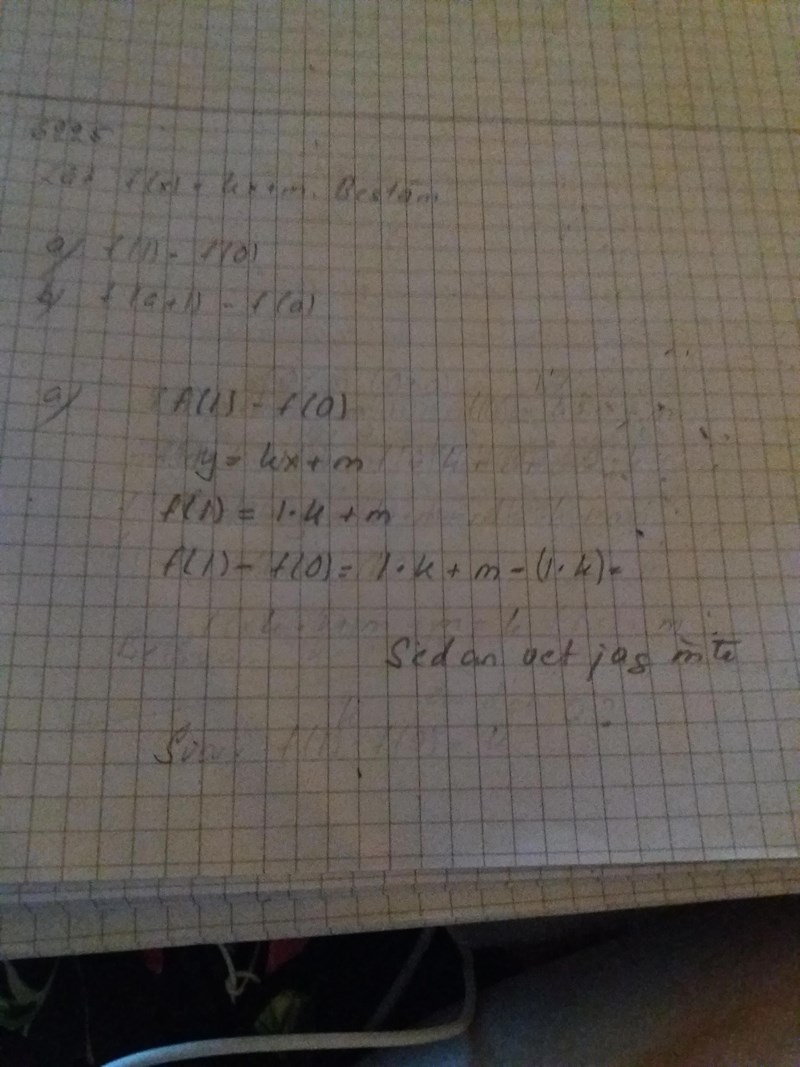 Låt f(x) = kx+m. Bestäm
a) f(1) - f(0)
b) f(a+1) - f(a)
a) f(1) - f(0)
y = kx+m
f(1) = 1·k + m
f(1) - f(0) = 1·k + m - (1·k) =
Sedan vet jag inte
Svar: f(1) f(0)